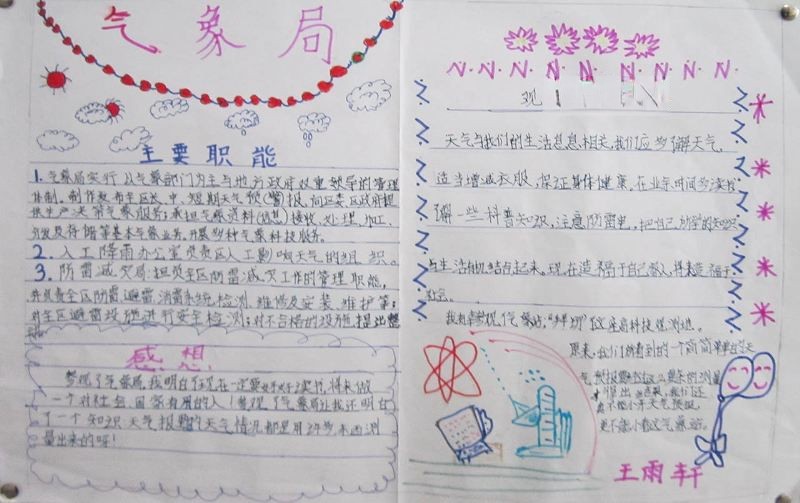 气象局
主要职能
1. 气象局实行以气象部门为主与地方政府双重领导的管理
体制。制作发布全区长、中、短期天气预(警)报,向区委区政府提
供生产天气气象服务;承担气象资料(信息)接收、处理、加工、
分发及存储等基本气象业务,开展多种气象科技服务。
2. 人工降雨办公室负责区人工影响天气的组织。
3. 防雷减灾局:担负全区防雷减灾工作的管理职能,
并负责全区防雷避雷、消雷系统检测、维修及安装、维护等;
对全区避雷设施进行安全检测;对不合格的设施提出整
感想
参观了气象局,我明白了现在一定要好好读书,将来做
一个对社会、国家有用的人!参观了气象局让我还明白
了一个知识天气报的天气情况都是用许多东西测
量出来的呀!
观
天气与我们的生活息息相关,我们应多了解天气,
适当增减衣服,保证身体健康。在业余时间多读书
了解一些科普知识,注意防雷电,把自己所学的知识
与生活相结合起来。现在造福于自己家人,将来造福于
社会。
我有幸参观气象站,“拜访”这座高科技观测站。
原来,我们所看到的一个简简单单的天
气预报
不能小看天气预报,
更不能小看这气象站。
王雨轩